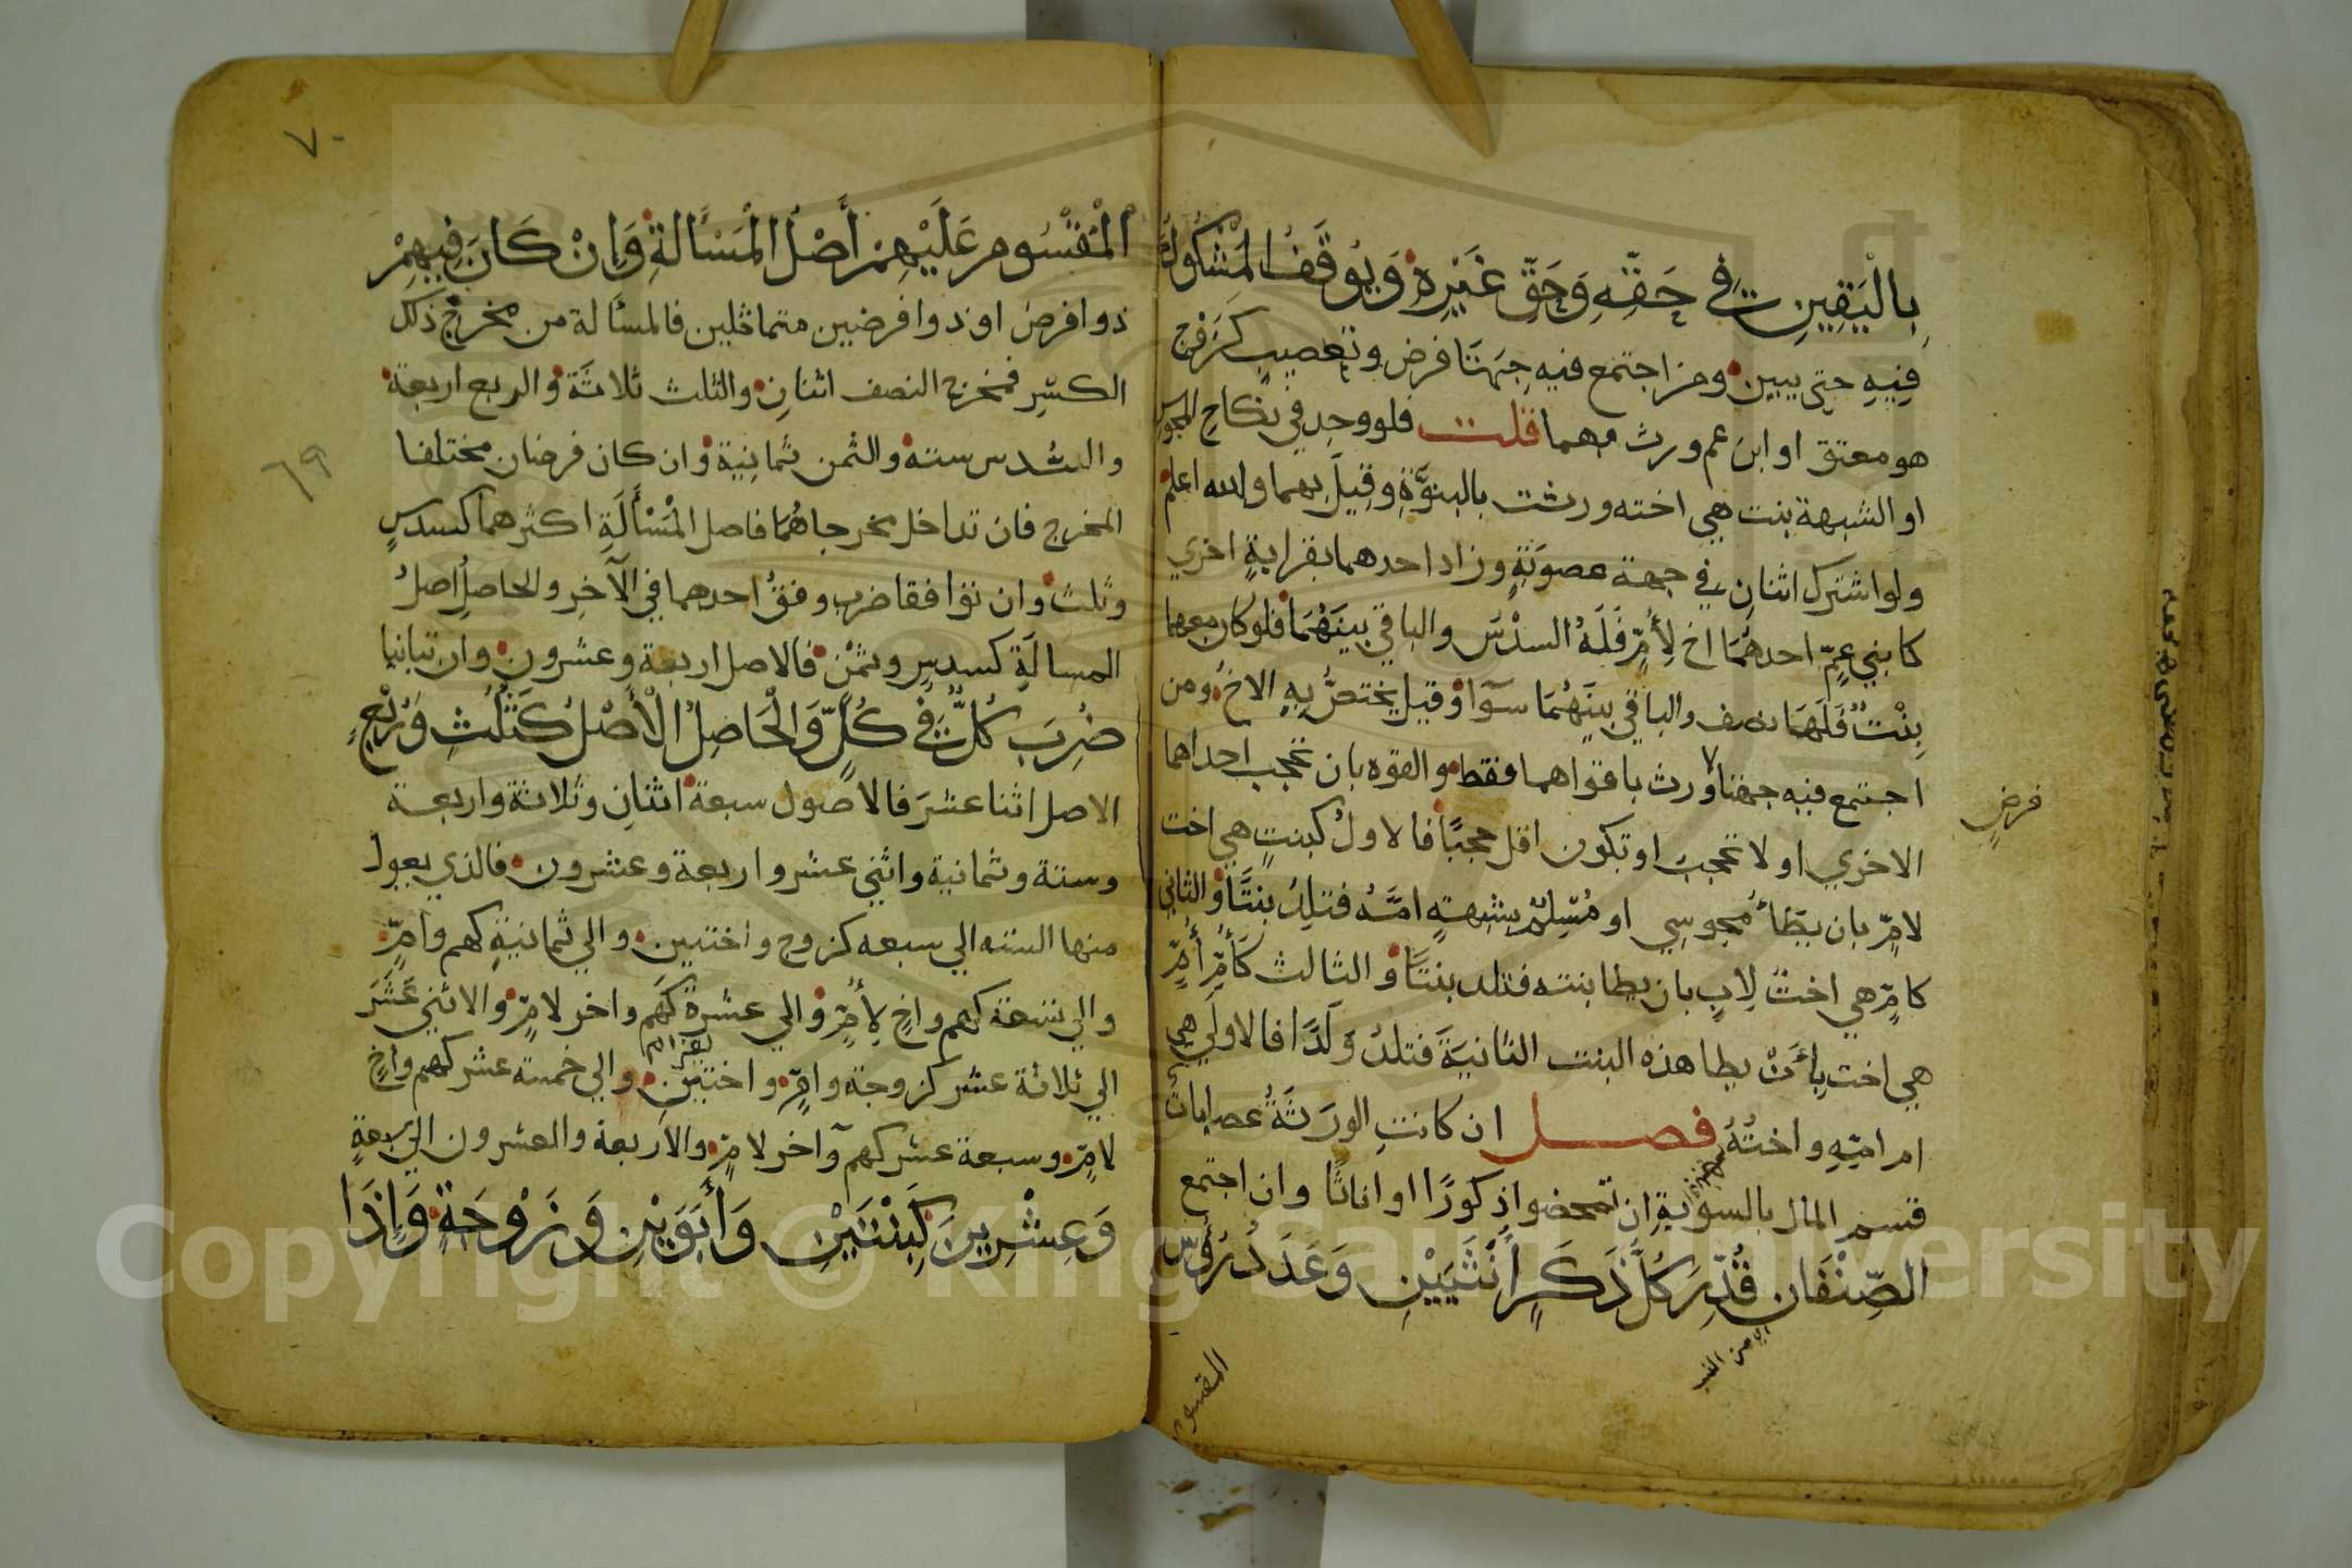 بِالْيَقِينِ فِي حَقِّهِ وَحَقِّ غَيْرِهِ وَيُوقَفُ الْمَشْكُوكُ
فِيهِ حتى يبين ومن اجتمع فيه جِهَتَا فرض وتعصيب كَزَوْج
هو معتق او ابن عم ورث بهما قلت فلو وجد في نكاح المجوس
او الشبهة بنت هي اخته ورثت بالبنوَّةِ وقِيلَ بهما والله اعلم
ولو اشترك اثنانِ في جهة عصوبَةٍ وزاد احدهما بقرابةٍ اخري
كابني عمٍّ احدهُمَا اخ لِأُمٍّ فَلَهُ السدْسَ والباقي بينَهُمَا فلو كان معهما
بِنْتٌ فَلَهَا نصف والباقي بينَهُمَا سوآا وقيل يختصُّ بِهِ الاخُ ومن
اجتمع فيه جهتا ورث باقواهما فقط والقوه بان تحجب احداهما
فرضٍ
الاخري او لا تحجب او تكون اقل حجبًا فالاولُ كبنتٍ هي اخت
لامٍّ بان يطأ مجوسي او مُسْلِمٌ بشبهةٍ امَّهُ فتلدُ بنتًا والثاني
كامٍّ هي اختٌ لِابٍ بان يطا بنته فتلد بنتًا والثالث كَأُمِّ أُمٍّ
هي اخت بِأَنْ يطا هذه البنت الثانيَةَ فتلدُ وَلَدًا فالاولَي هي
ام امّهِ واختُهُ فصل ان كانتِ الورَثَةُ عصاباتٌ
قسم المال بالسويةِ ان تمحضوا ذكورًا او اناثًا وان اجتمع
الصِّنْفَان قُدِّرَ كُلُّ ذَكَرٍ أُنْثَيَيْنِ وَعَدَدُ رُؤُسِ
من النسب
المقسوم
٧٠
الْمَقْسُوم عَلَيْهِمْ أَصْلُ الْمَسْأَلَةِ وَإِنْ كَانَ فِيهِمْ
ذوا فرض او ذوا فرضين متماثلين فالمسألة من مخرج ذلك
الكسْرِ فمخرج النصف اثنانِ والثلث ثلاثَة والربع اربعة
والسُّدس ستة والثمن ثمانِيَة وان كان فرضان مختلفا
٦٩
المخرج فان تداخل مخرجاهُمَا فاصل الْمَسْأَلَةِ اكثرهما كسدسٍ
وثلث وان توافقا ضرب وفقُ احدهما في الآخرِ والحاصلُ اصلُ
المسالَةِ كسدسٍ وثمْن فالاصل اربعة وعشرون وان تباينا
ضُرِبَ كُلٌّ فِي كُلٍّ وَالْحَاصِلُ الْأَصْلُ كَثُلُثِ وَرُبْعٍ
الاصل اثنا عشرَ فالاصول سبعة اثنانِ وثلاثة واربعة
وستة وثمانية واثني عشر واربعة وعشرون فالذي يعول
منها السته الي سبعه كزوج واختين والي ثمانيةٍ كهم وامٍّ
والي تسعة كهم واخٍ لِأُمٍّ والي عشرة كَهُم واخر لامٍّ والاثني عَشَرَ
الي ثلاثة عشر كزوجة وامٍّ واختين والي خمسة عشر كهم واخٍ
لامٍّ وسبعة عشر كهم وآخر لامٍّ والاربعة والعشرون الي سبعةٍ
وَعِشْرِينَ كَبِنْتَيْنِ وَأَبَوَيْنِ وَزَوْجَةٍ وَإِذَا
Copyright © King Saud University